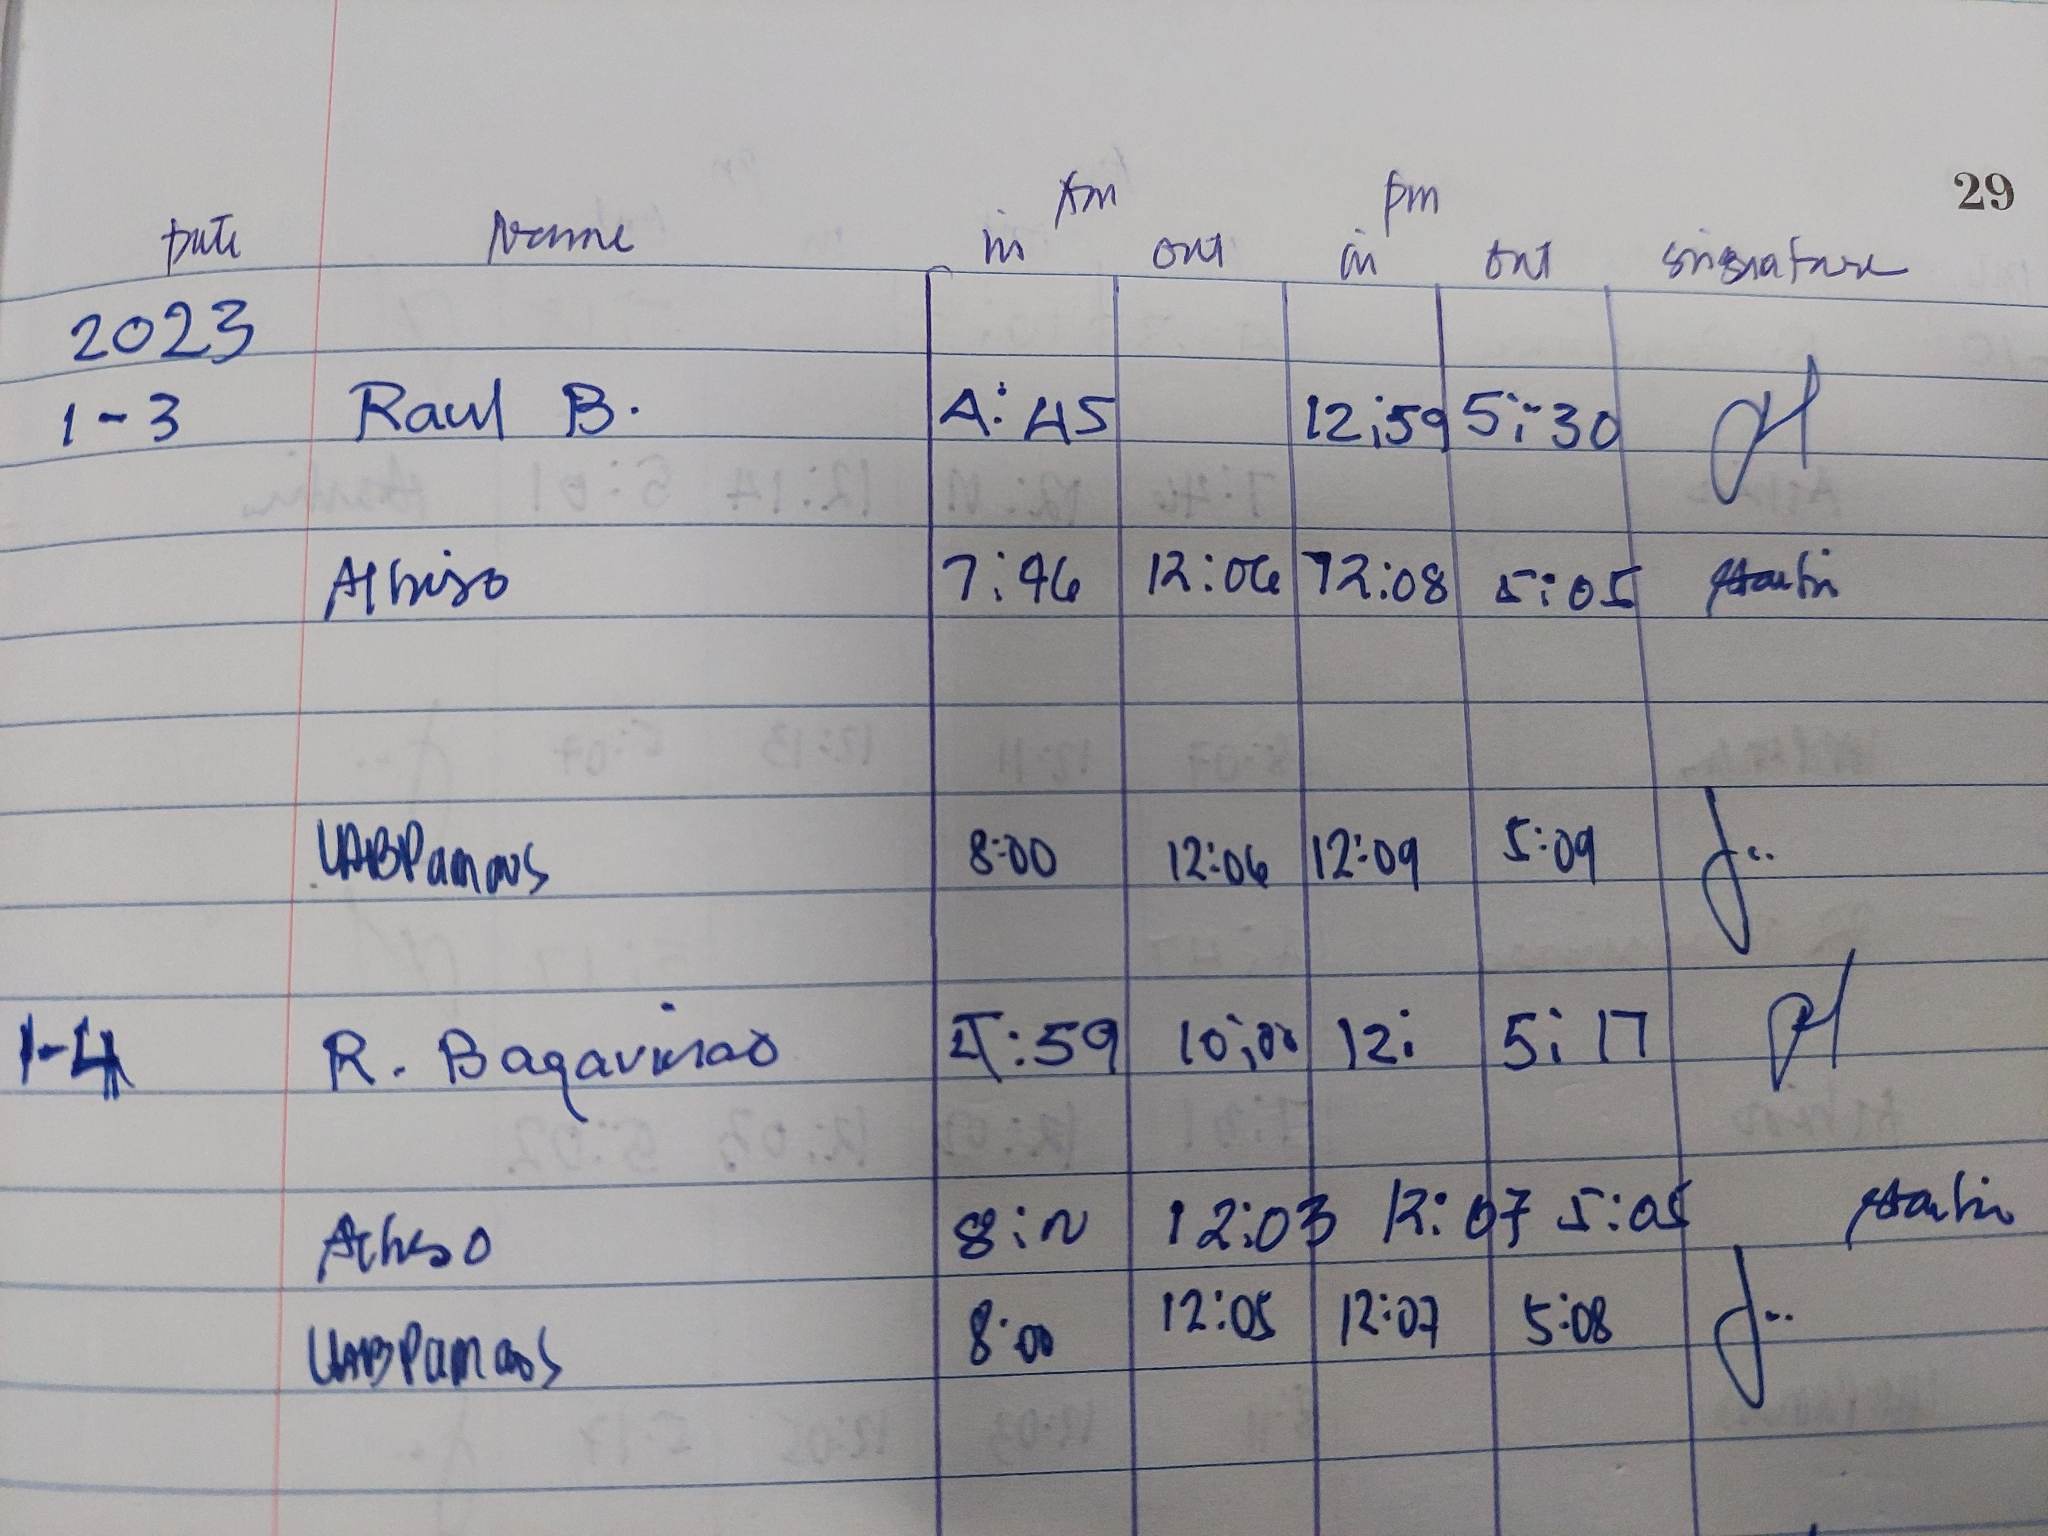 29
Am pm
Date Name in out in out signature
2023
1-3 Raul B. 4:45 12:59 5:30
7:46 12:06 12:08 5:05
UABPamaos 8:00 12:06 12:09 5:09
1-4 R. Bagavinao 4:59 10:00 12: 5:17
12:03 12:07 5:05
UABPamaos 8:00 12:05 12:07 5:08